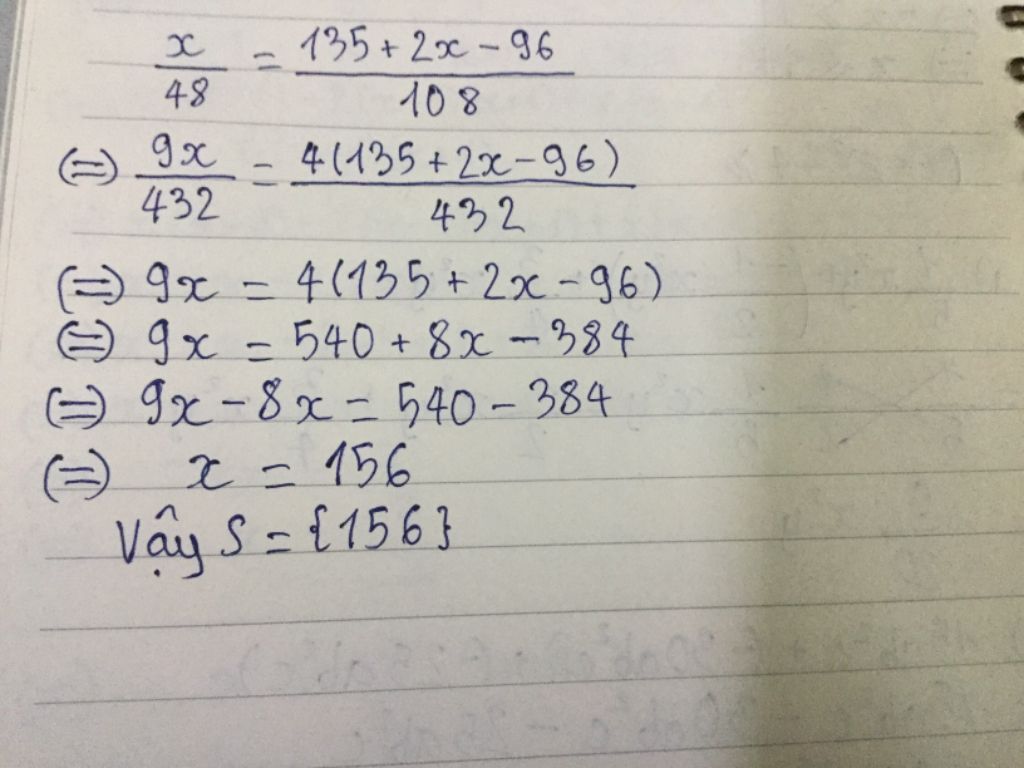 x/48 = 135 + 2x - 96/108
(=) 9x/432 = 4(135 + 2x - 96)/432
(=) 9x = 4(135 + 2x - 96)
(=) 9x = 540 + 8x - 384
(=) 9x - 8x = 540 - 384
(=) x = 156
Vậy S = {156}